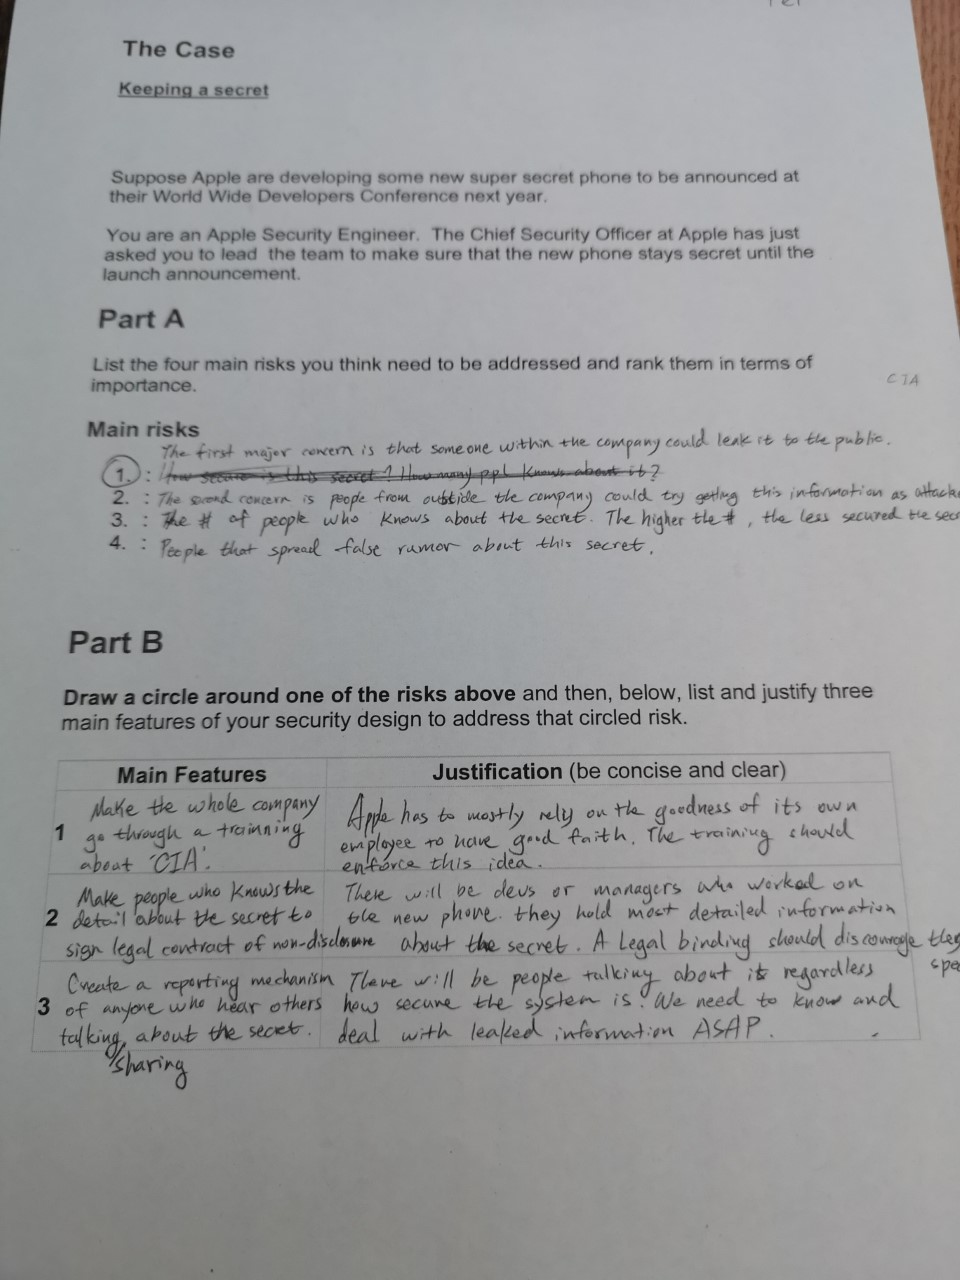 The Case
Keeping a secret
Suppose Apple are developing some new super secret phone to be announced at
their World Wide Developers Conference next year.
You are an Apple Security Engineer. The Chief Security Officer at Apple has just
asked you to lead the team to make sure that the new phone stays secret until the
launch announcement.
Part A
List the four main risks you think need to be addressed and rank them in terms of
importance.
CIA
Main risks
The first major concern is that someone within the company could leak it to the public.
1. : How secure is this secret? How many ppl knows about it?
2. : The second concern is people from outside the company could try getting this information as attacke
3. : The # of people who knows about the secret. The higher the #, the less secured the secr
4. : People that spread false rumor about this secret.
Part B
Draw a circle around one of the risks above and then, below, list and justify three
main features of your security design to address that circled risk.
Main Features
Justification (be concise and clear)
1
Make the whole company
go through a trainning
about 'CIA'.
Apple has to mostly rely on the goodness of its own
employee to have good faith. The training should
enforce this idea.
2
Make people who knows the
detail about the secret to
sign legal contract of non-disclosure
There will be devs or managers who worked on
the new phone. they hold most detailed information
about the secret. A Legal binding should discourage they
spe
3
Create a reporting mechanism
of anyone who hear others
talking, about the secret.
sharing
There will be people talking about it regardless
how secure the system is. We need to know and
deal with leaked information ASAP.